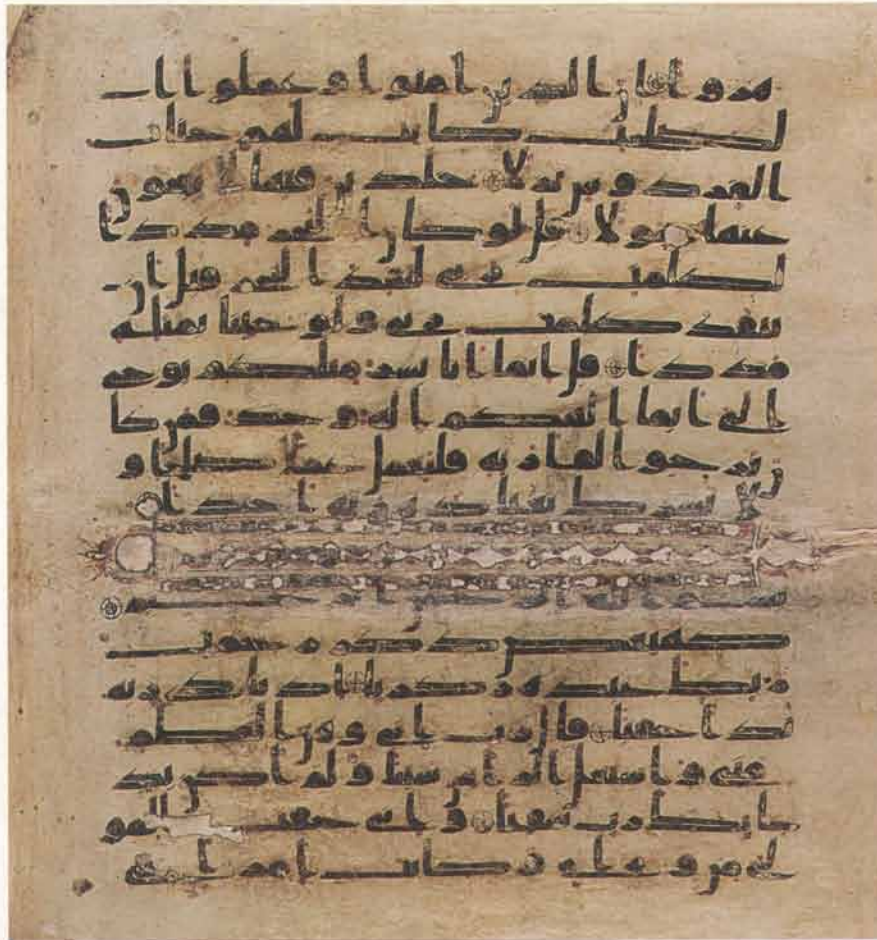 هزوا ان الذين امنوا وعملوا ا
لصلحت كانت لهم جنت
الفردوس نزلا خلدين فيها لا يبغون
عنها حولا قل لو كان البحر مددا
لكلمت ربي لنفد البحر قبل ان
تنفد كلمت ربي ولو جينا بمثله
مددا قل انما انا بشر مثلكم يوحى
الي انما الهكم اله وحد فمن كا
ن يرجوا لقا ربه فليعمل عملا صلحا و
لا يشرك بعباده ربه احدا
بسم الله الرحمن الرحيم
كهيعص ذكر رحمت
ربك عبده زكريا اذ نادى ربه
ندا خفيا قال رب اني وهن العظم
مني واشتعل الراس شيبا ولم اكن بد
عايك رب شقيا واني خفت المو
لي من وراي وكانت امراتي